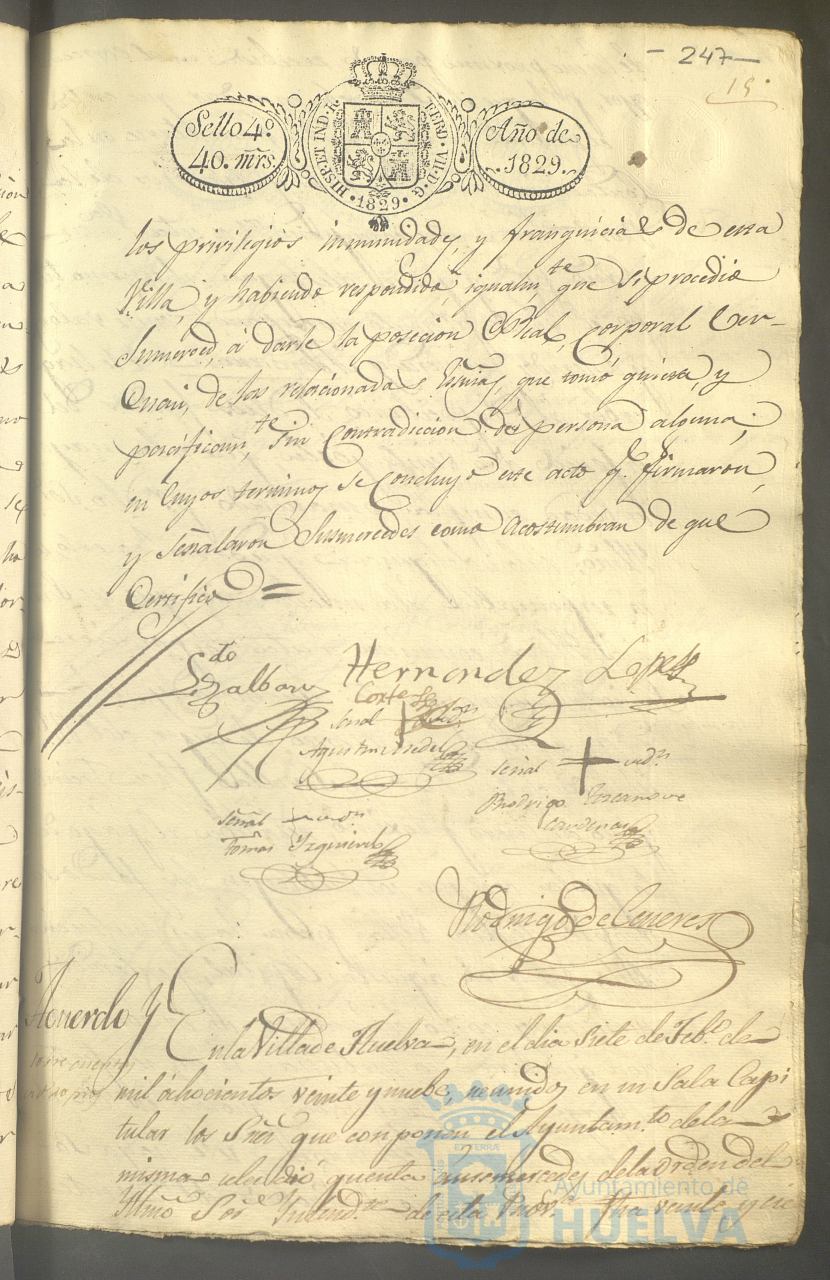 - 247 -
15
Sello 4º
40. mrs.
HISP. ET IND. R.
FERD. VII. D. G.
1829
Año de
1829.
los privilegios inmunidades, y franquicias de esta
Villa, y habiendo respondido igualm.te que si procedió
Sumerced, á darle la posecion Real, corporal
de las relacionadas que tomó quieta, y
pacificam.te sin contradiccion de persona alguna;
en cuyos terminos se concluyó este acto q.e firmaron,
y señalaron Susmercedes como acostumbran de que
Certifico =
Hernandez Lopez
Cortes
señal + de
Agustin
señal + de
Rodrigo
Cardenas
señal + de
Tomas Izquierdo
Rodrigo de Ceneres
Acuerdo y
En la Villa de Huelva, en el dia siete de Feb.o de
mil ahocientos veinte y nuebe, reunidos en su Sala Capi
tular los Sres que conponen el Ayuntam.to de la
misma se les dió quenta a susmercedes de la orden del
Iltmo Sor Intend.te de esta Prov.a fha veinte y cie
Ayuntamiento de
HUELVA